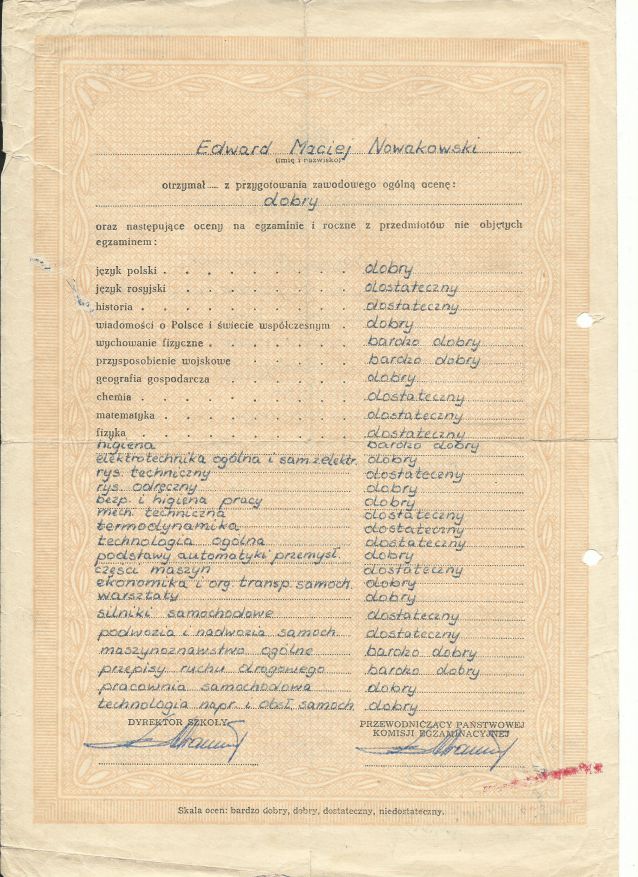 Edward Maciej Nowakowski
(imię i nazwisko)
otrzymał — z przygotowania zawodowego ogólną ocenę:
dobry
oraz następujące oceny na egzaminie i roczne z przedmiotów nie objętych
egzaminem:
język polski . . . . . . . . . dobry
język rosyjski . . . . . . . . dostateczny
historia . . . . . . . . . . dostateczny
wiadomości o Polsce i świecie współczesnym . dobry
wychowanie fizyczne . . . . . . . bardzo dobry
przysposobienie wojskowe . . . . . . bardzo dobry
geografia gospodarcza . . . . . . . dobry
chemia . . . . . . . . . . dostateczny
matematyka . . . . . . . . . dostateczny
fizyka . . . . . . . . . . dostateczny
higiena bardzo dobry
elektrotechnika ogólna i sam.z.elektr. dobry
rys. techniczny dostateczny
rys. odręczny dobry
bezp. i higiena pracy dobry
mech. techniczna dostateczny
termodynamika dostateczny
technologia ogólna dostateczny
podstawy automatyki przemysł. dobry
części maszyn dostateczny
ekonomika i org. transp. samoch. dobry
warsztaty dobry
silniki samochodowe dostateczny
podwozia i nadwozia samoch. dostateczny
maszynoznawstwo ogólne bardzo dobry
przepisy ruchu drogowego bardzo dobry
pracownia samochodowa dobry
technologia napr. i obsł. samoch. dobry
DYREKTOR SZKOŁY PRZEWODNICZĄCY PAŃSTWOWEJ
KOMISJI EGZAMINACYJNEJ
Skala ocen: bardzo dobry, dobry, dostateczny, niedostateczny.